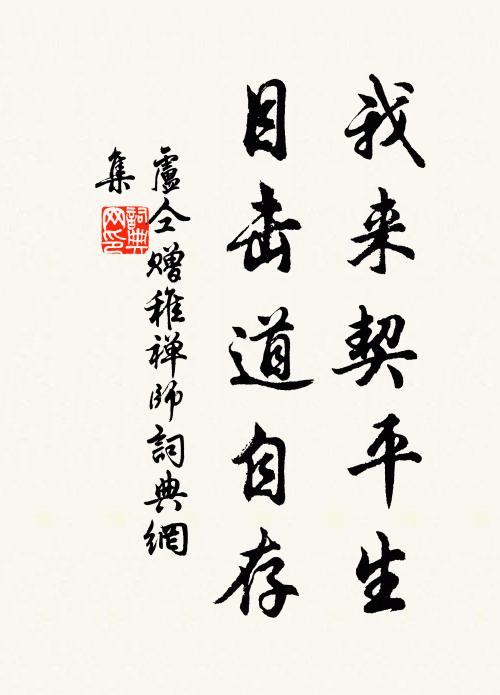 我来契平生
目击道自存
盧仝赠稚禅师詞典網
集
詞典
网印